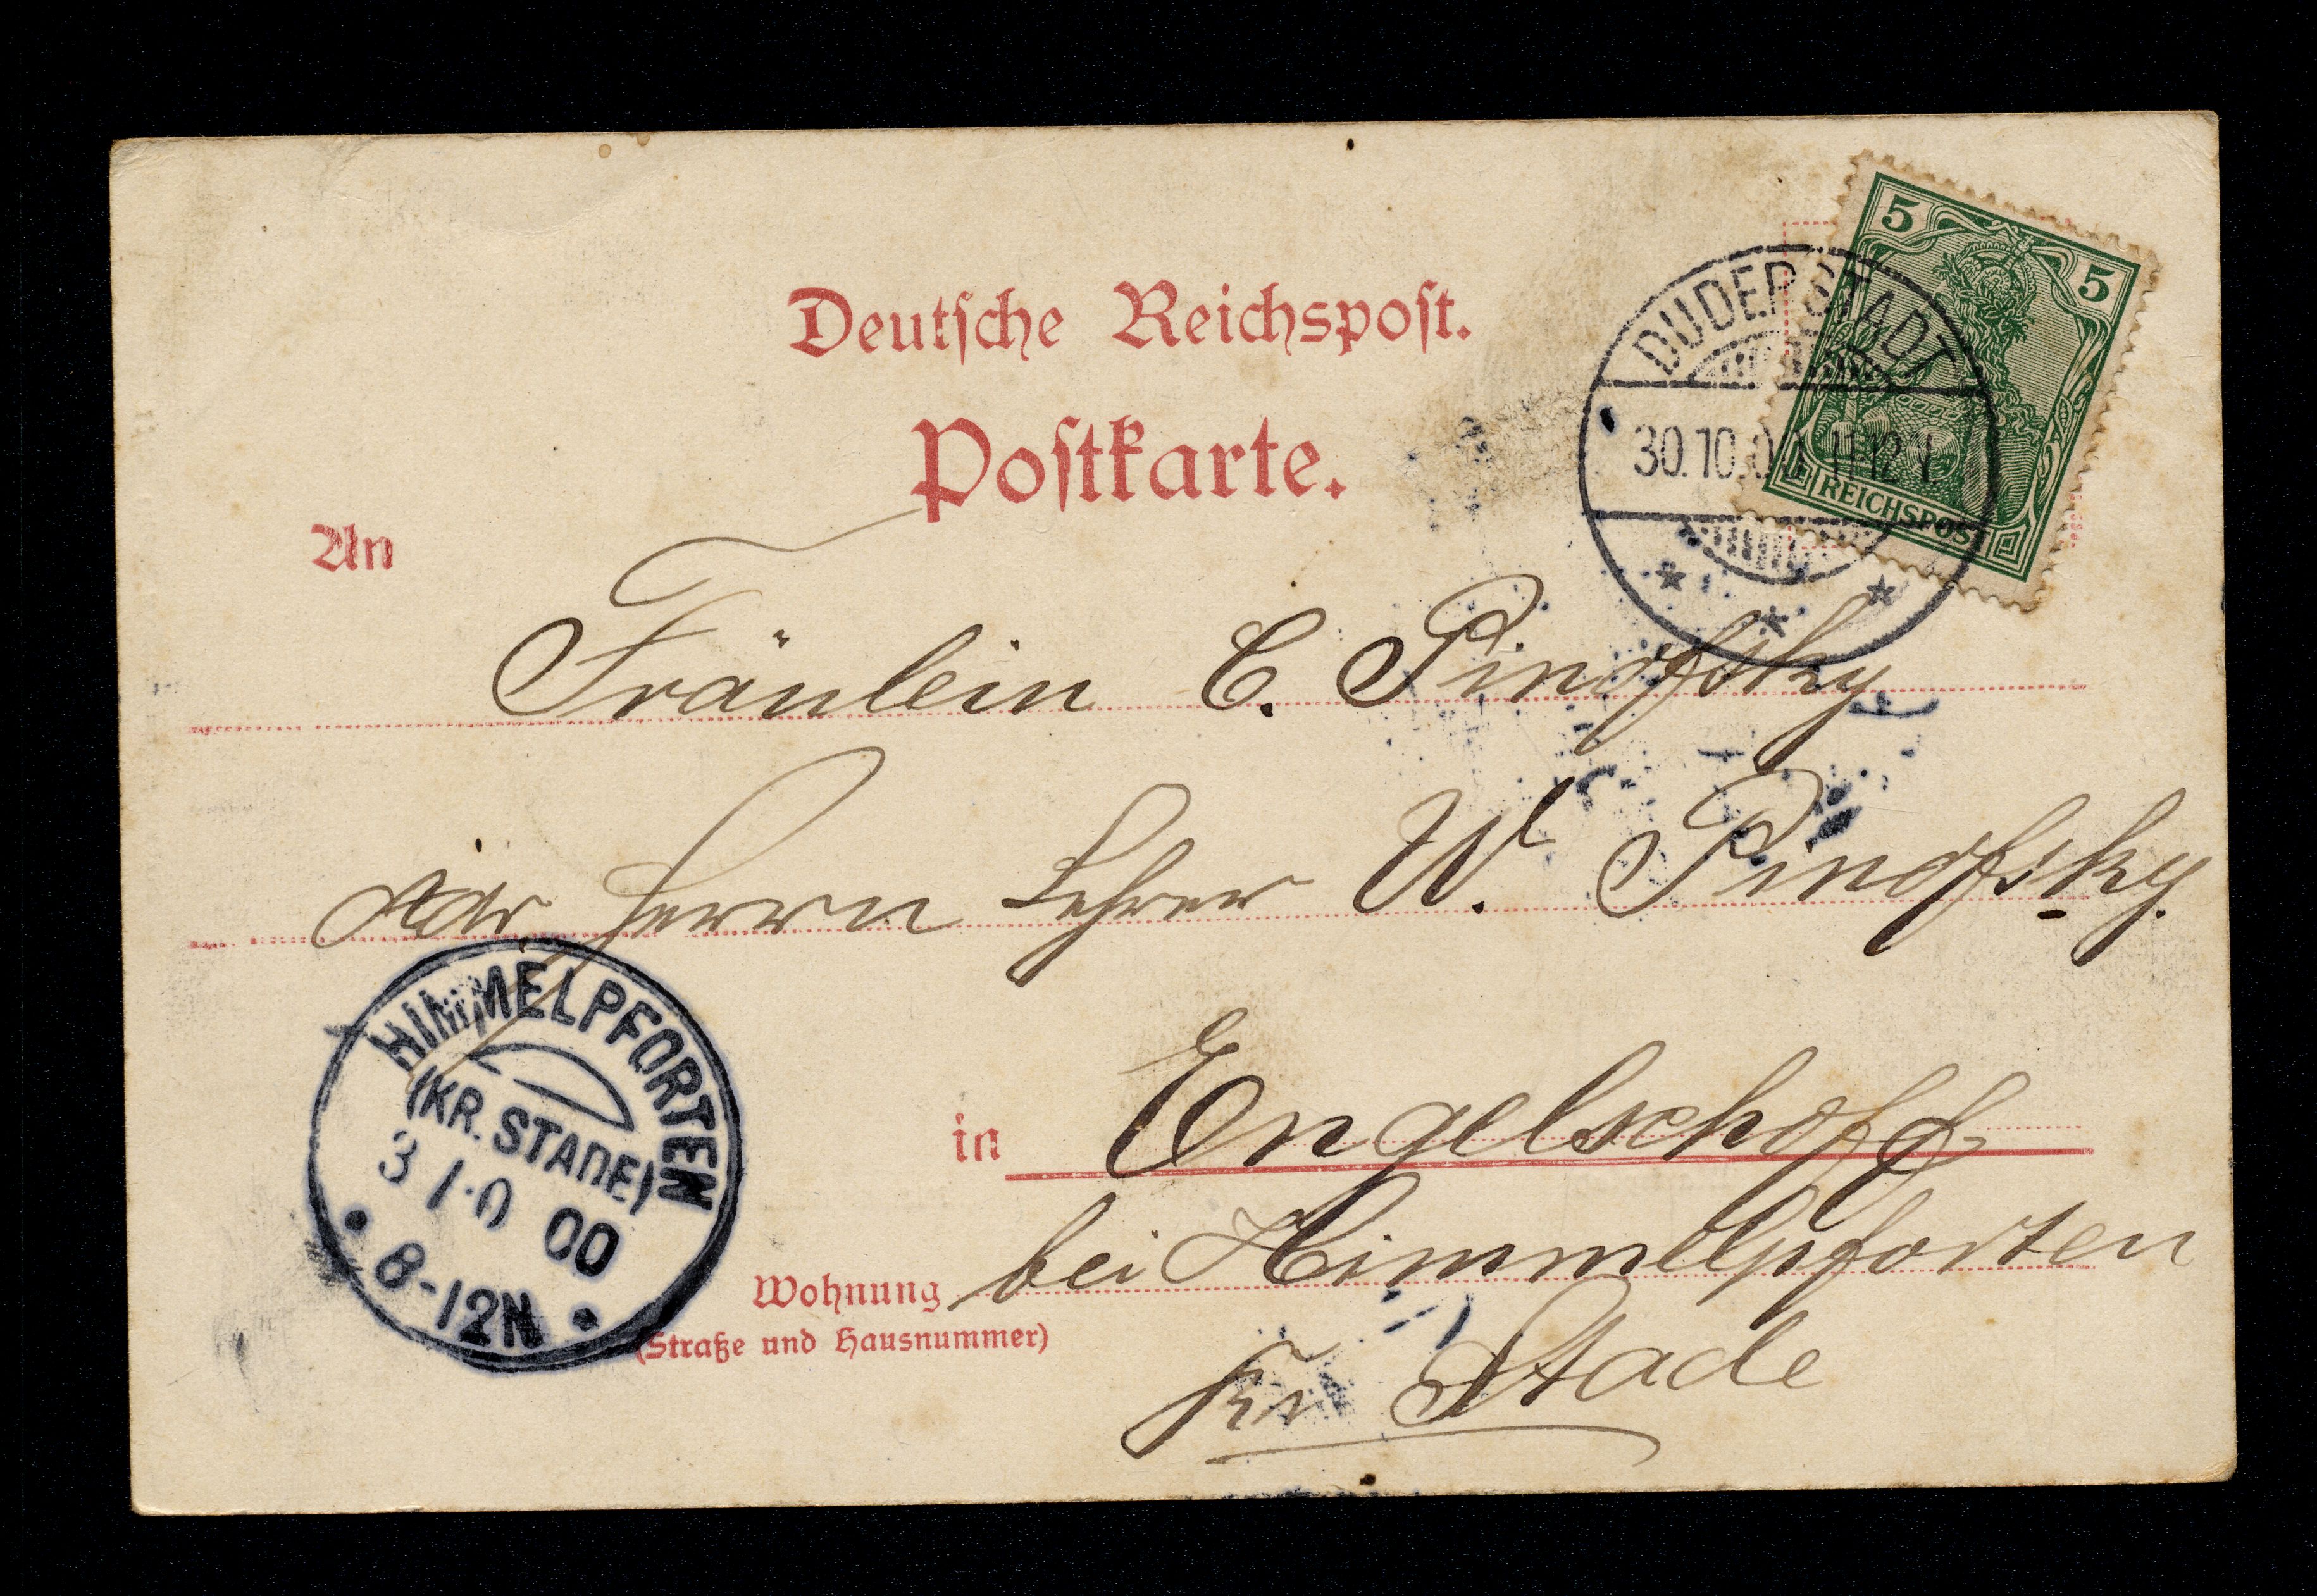 Deutsche Reichspost.
Postkarte.
5 5
REICHSPOST
DUDERSTADT
30.10.00 11-12 V.
* * *
An
Fräulein C. Pinofsky
Adr. Herrn Lehrer W. Pinofsky.
in Engelschoff
bei Himmelpforten
Wohnung
(Straße und Hausnummer)
Kr. Stade
HIMMELPFORTEN
(KR. STADE)
31.0 00
8-12N